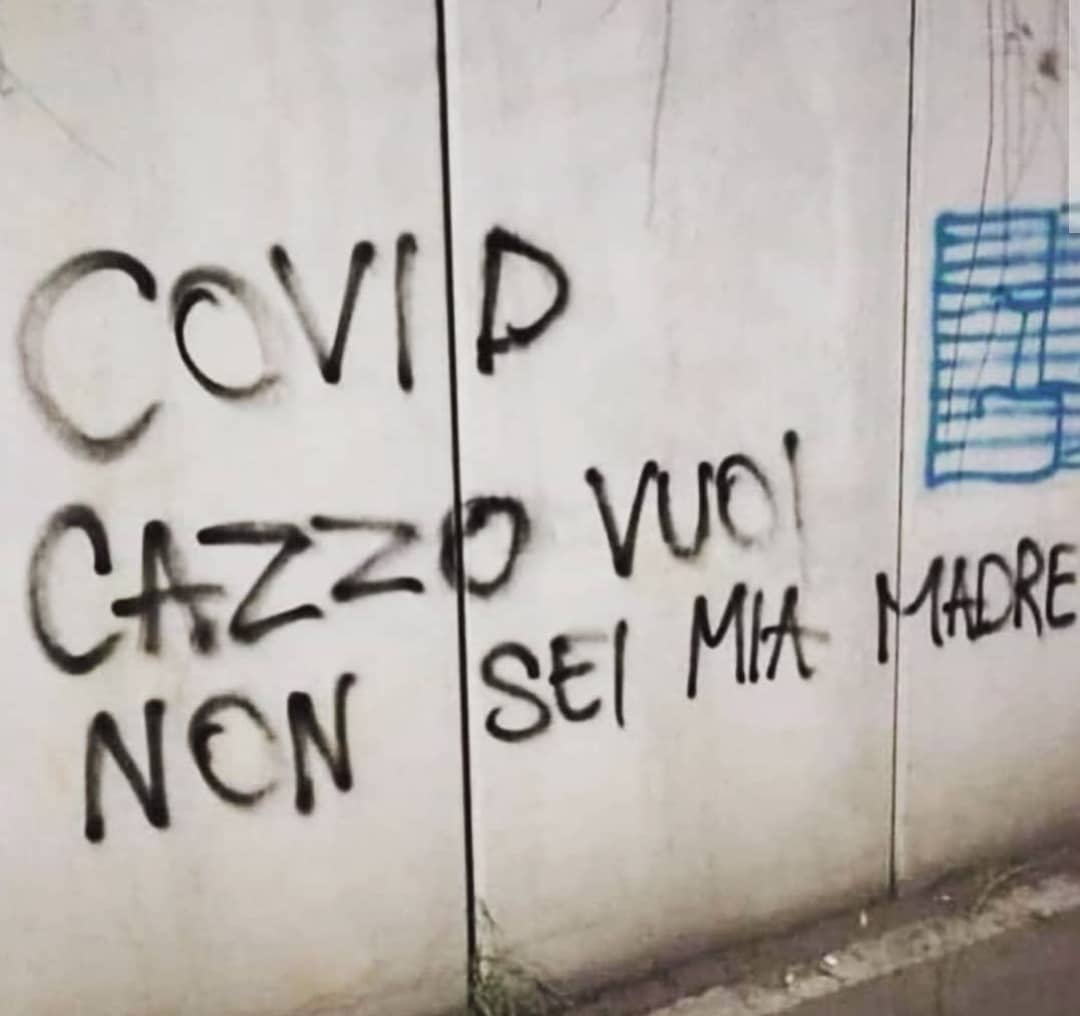 COVID
CAZZO VUOI
NON SEI MIA MADRE